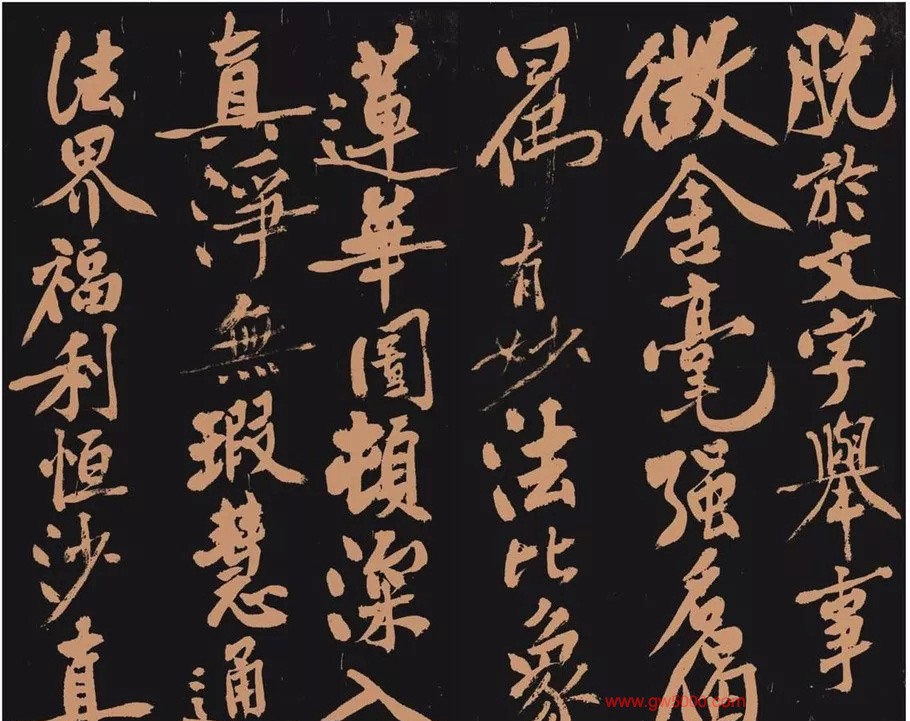 脱於文字舉事
徵含毫强名偈
曰佛有妙法比象
蓮華圓頓深入
真淨無瑕慧通
法界福利恒沙真
www.gw5000.com